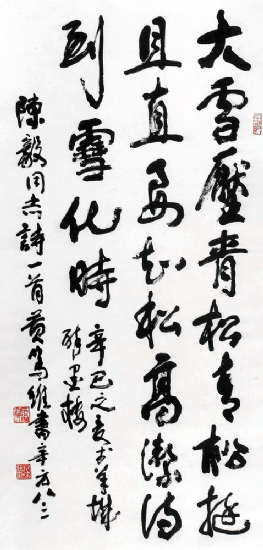 大雪壓青松青松挺
且直要知松高潔待
到雪化時
辛巳之夏於羊城
墨樓
陳毅同志詩一首黃篤維書年方八三